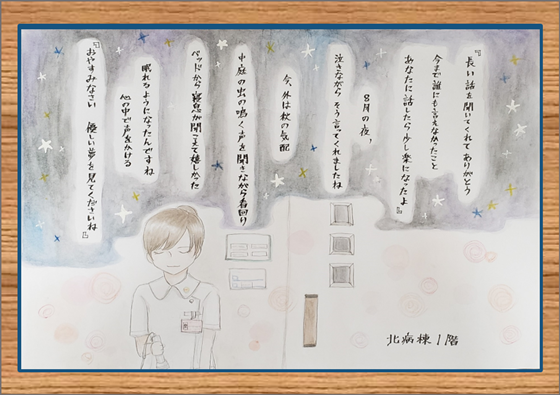 『長い話を聞いてくれてありがとう
今まで誰にも言えなかったこと
あなたに話したら少し楽になったよ』
8月の夜、
泣きながら そう言ってくれましたね
今、外は秋の気配
中庭の虫の鳴く声を聞きながら看回り
ベッドから寝息が聞こえて嬉しかった
眠れるようになったんですね
心の中で声をかける
『おやすみなさい 優しい夢を見てくださいね』
北病棟1階